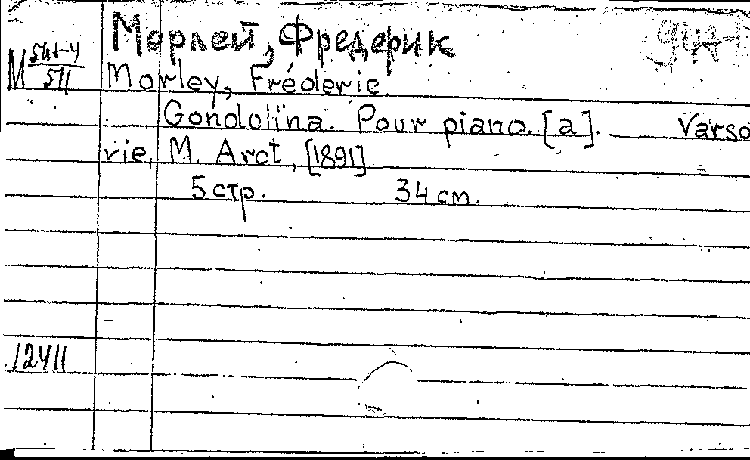 Морлей, Фредерик
М 541-4/511
Morley, Fréderic.
Gondolina. Pour piano. [a]. Varso
vie, M. Arct, [1891]
5 стр. 34 см.
12411